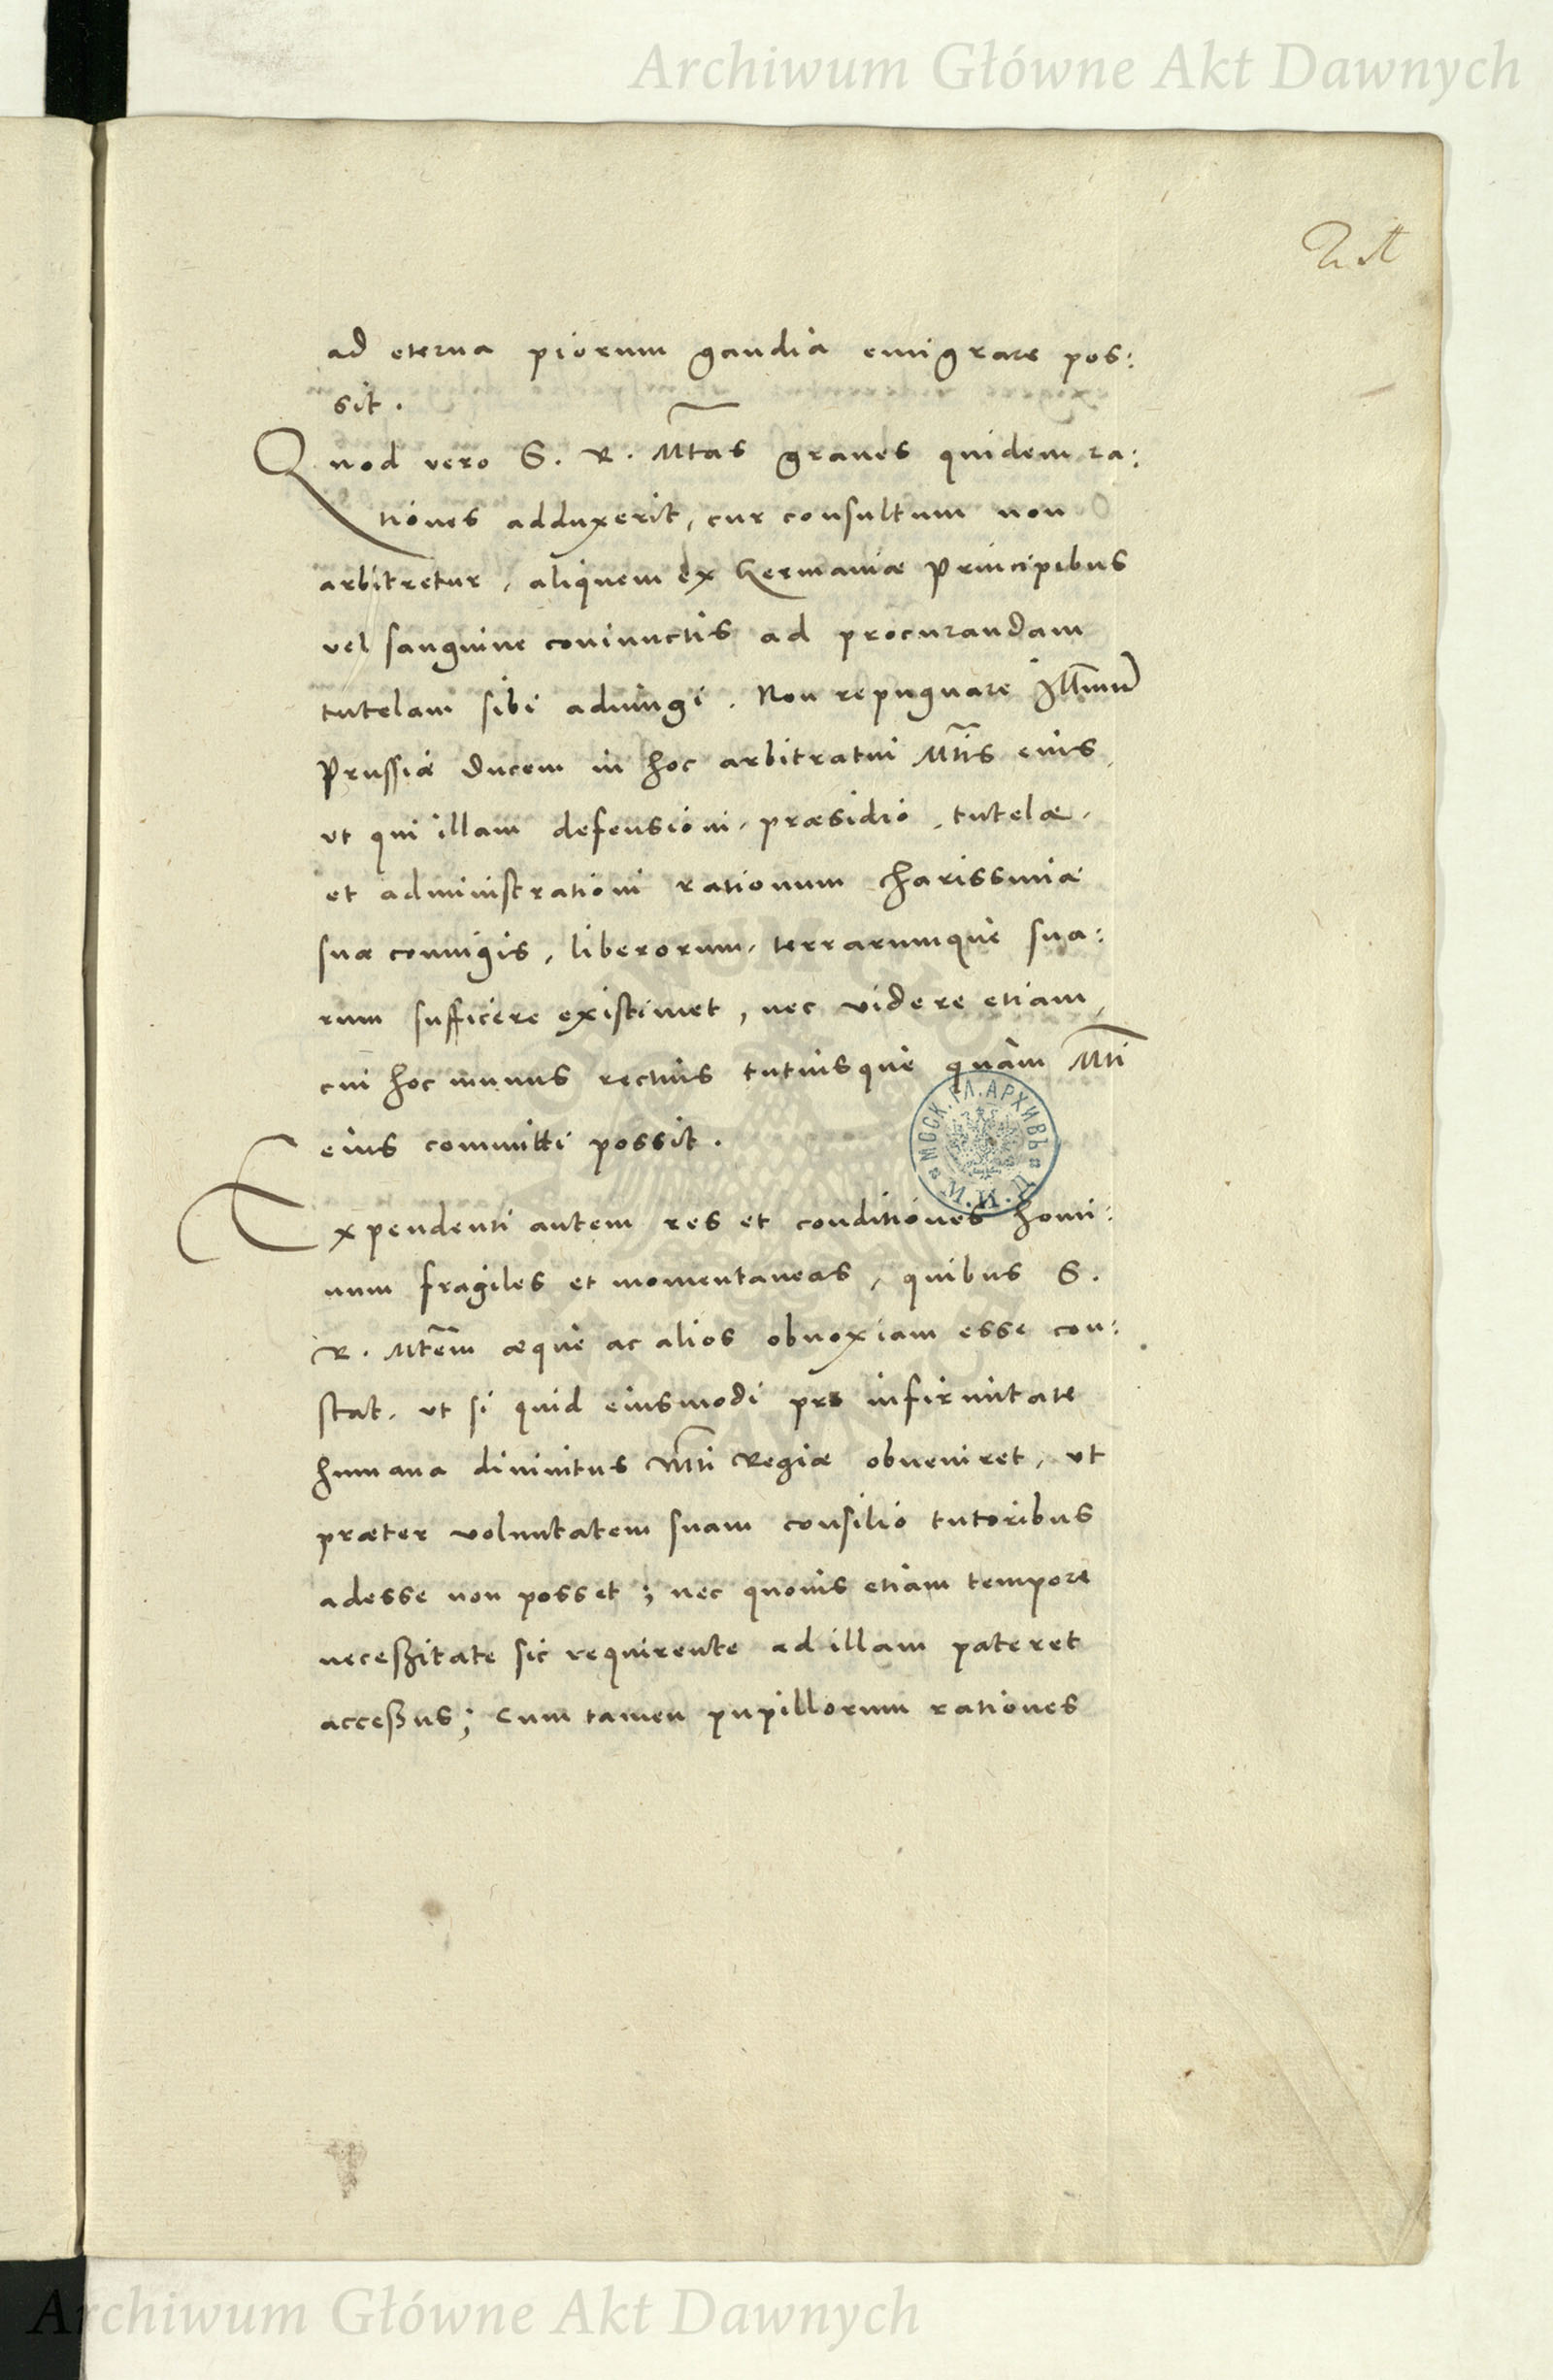 Archiwum Główne Akt Dawnych
ad eterna piorum gaudia emigrare pos:
sit.
Quod vero S. R. Mtas graues quidem ra:
tiones adduxerit, cur consultum non
arbitretur, aliquem ex Germaniæ Principibus
vel sanguine coniunctis ad procurandam
tutelam sibi adiungi. Non repugnare Illmum
Prussiæ Ducem in hoc arbitratui Mtis eius,
vt qui illam defensioni, præsidio, tutelæ,
et administrationi rationum charissimæ
suæ coniugis, liberorum, terrarumque sua:
rum sufficere existimet, nec videre etiam,
cui hoc munus rectius tutiusque quàm Mti
eius committi possit.
Expendenti autem res et conditiones homi:
num fragiles et momentaneas, quibus S.
R. Mtem æque ac alios obnoxiam esse con:
stat, vt si quid eiusmodi pro infirmitate
humana diuinitus Mti Regiæ obueniret, vt
præter voluntatem suam consilio tutoribus
adesse non posset; nec quouis etiam tempore
neceßitate sic requirente ad illam pateret
acceßus; Cum tamen pupillorum rationes
МОСК. ГЛ. АРХИВЪ
М.И.Д.
Archiwum Główne Akt Dawnych